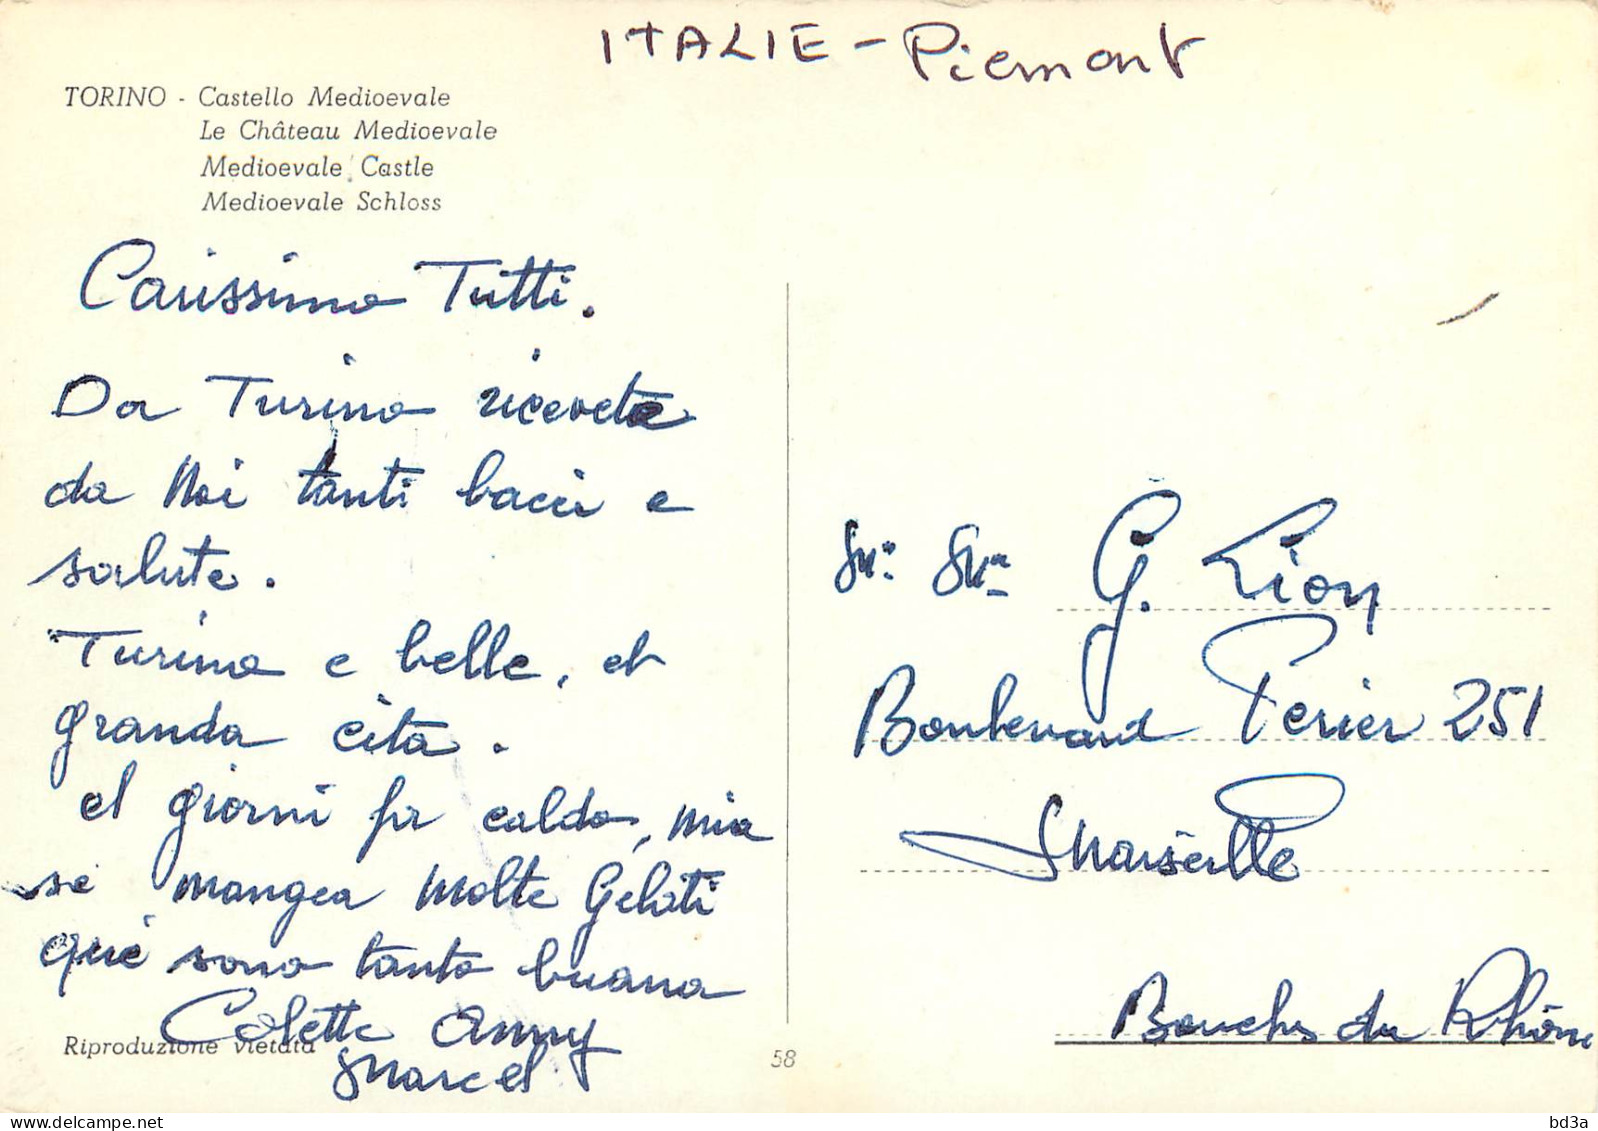 ITALIE - Piemont
TORINO - Castello Medioevale
Le Château Medioevale
Medioevale Castle
Medioevale Schloss
Carissimo Tutti.
Da Turino ricevete
da Noi tanti bacci e
salute.
Turino e belle, et
granda cita.
el giorni fa caldo, mia
se mangea molte Gelati
que sono tanto buana
Colette Anny
Marcel
Riproduzione vietata
58
G. Lion
Boulevard Perier 251
Marseille
Bouches du Rhône
bd3a